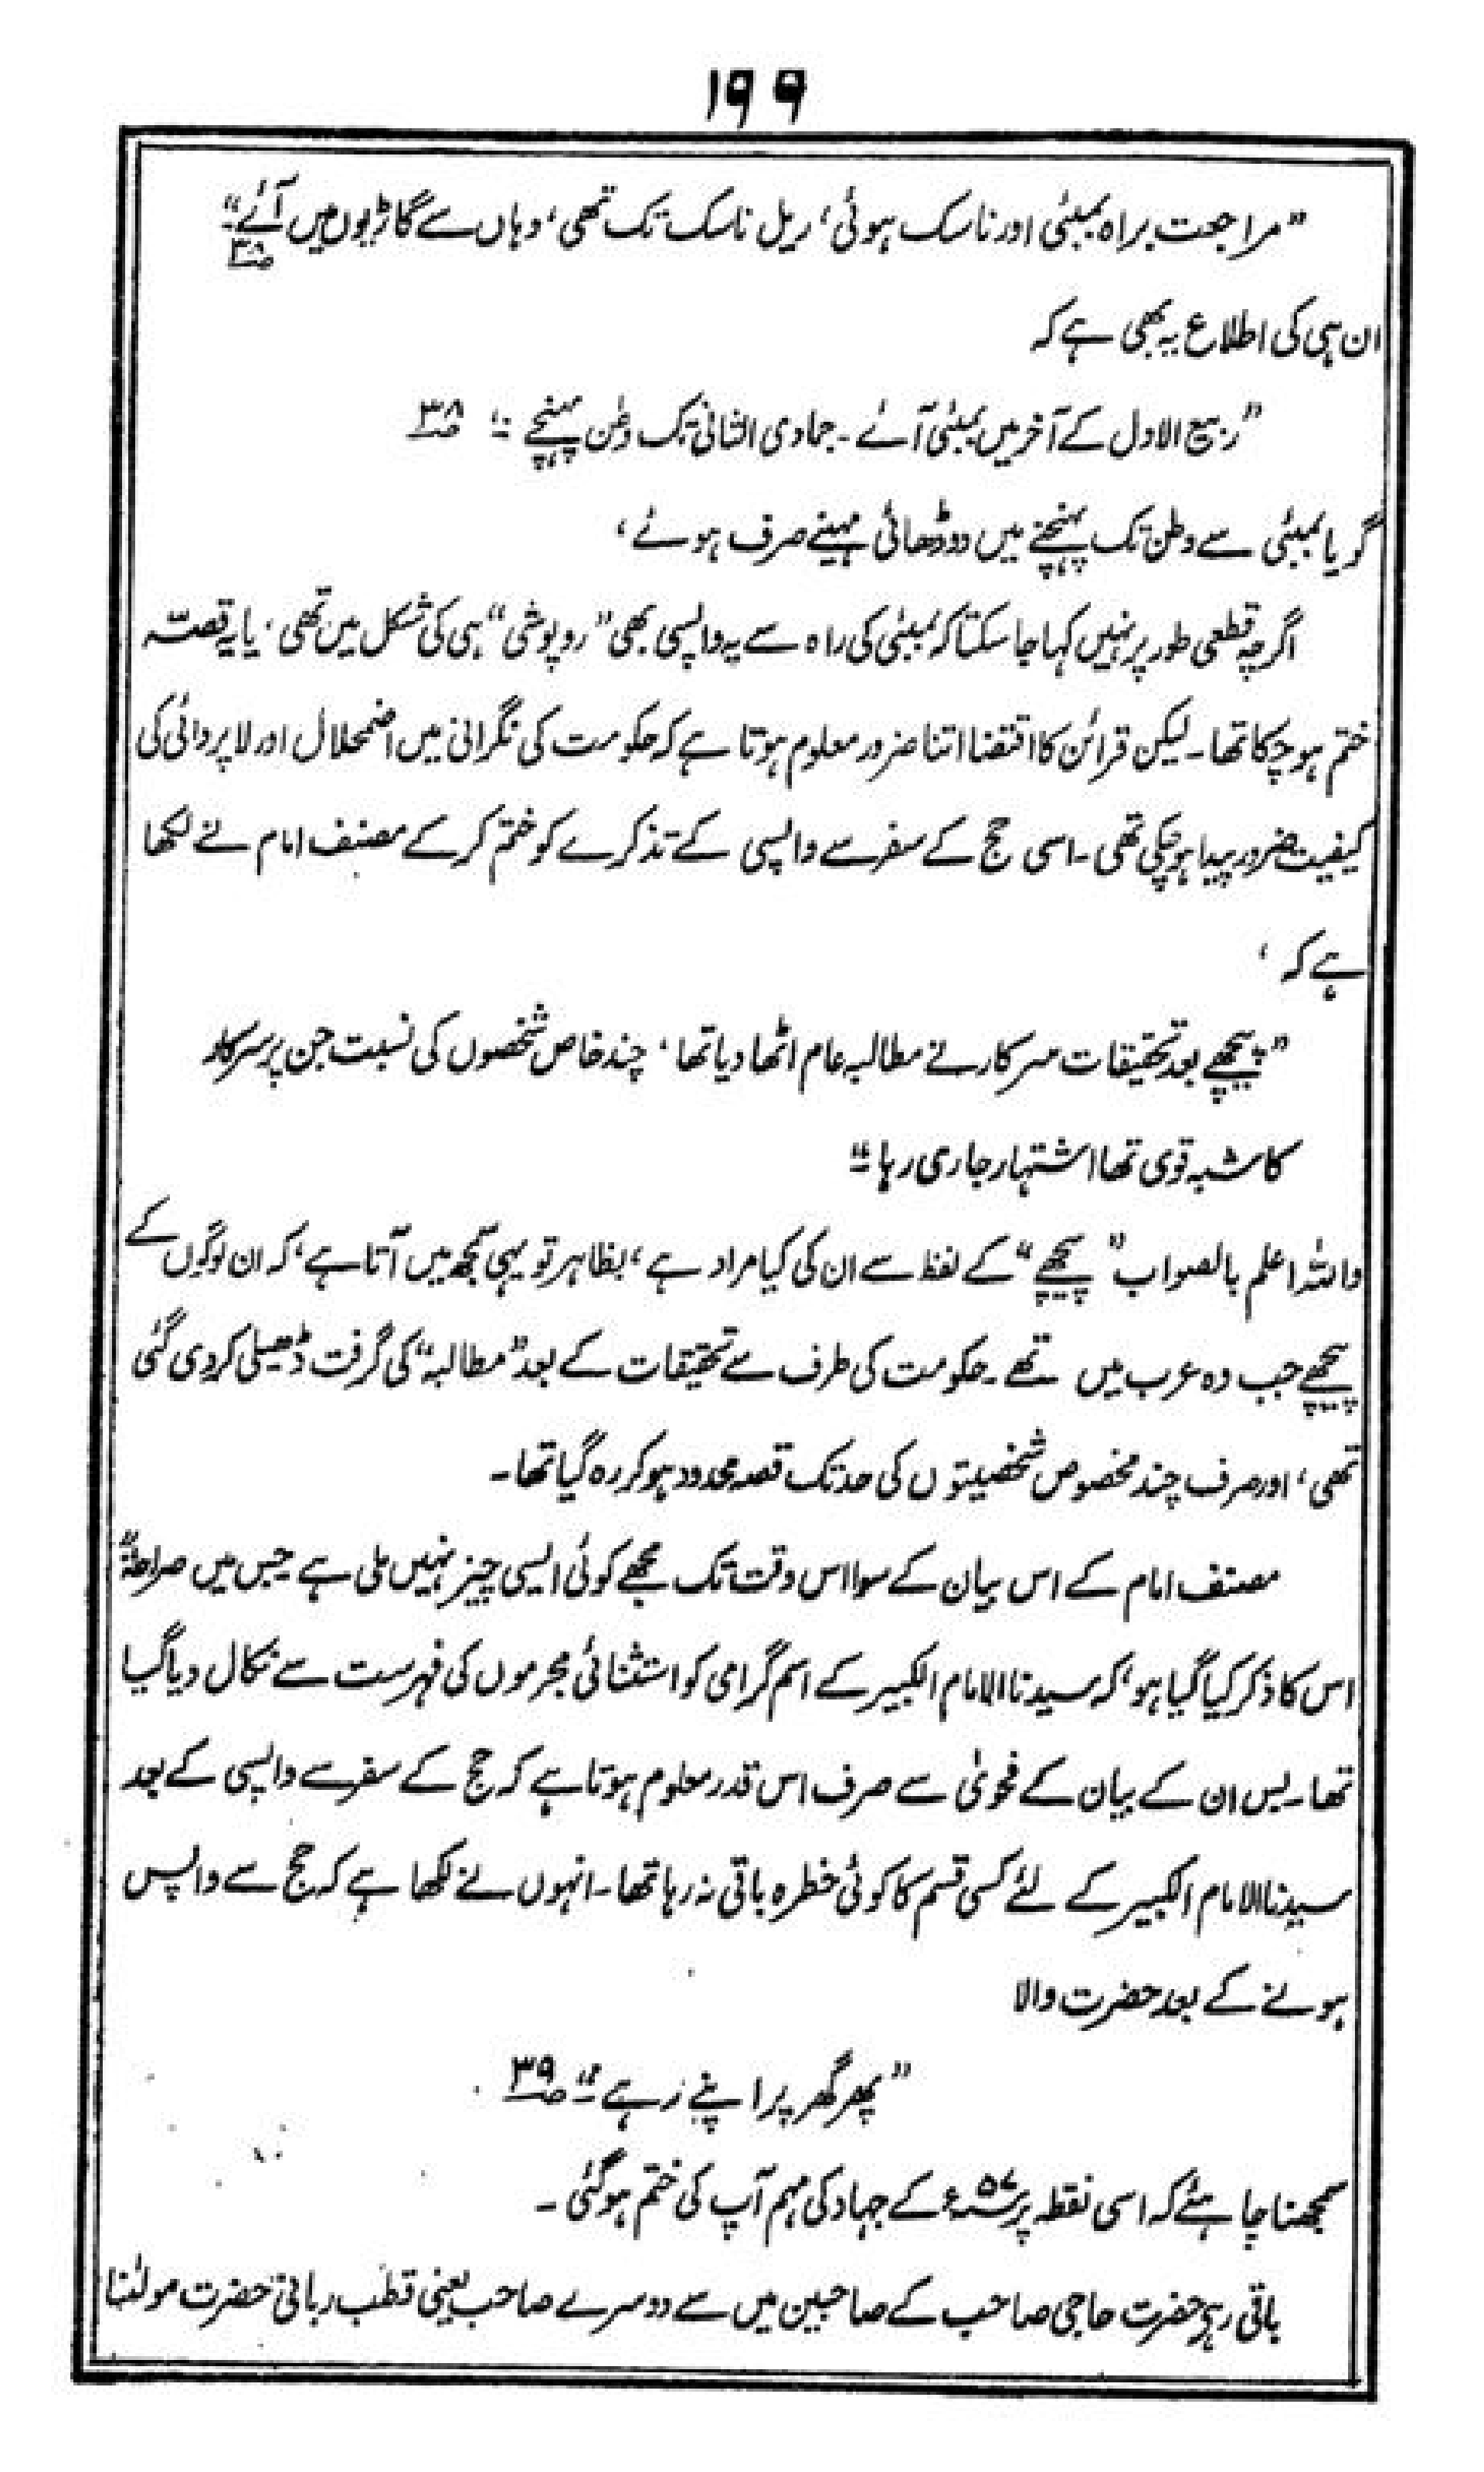 ۱۹۹
”مراجعت براہ بمبئی اور ناسک ہوئی، ریل ناسک تک تھی، وہاں سے گاڑیوں میں آئے“ ص۳۸
ان ہی کی اطلاع یہ بھی ہے کہ
”ربیع الاول کے آخر میں بمبئی آئے۔ جمادی الثانی تک وطن پہنچے“ ص۳۸
گویا بمبئی سے وطن تک پہنچنے میں دو ڈھائی مہینے صرف ہوئے،
اگرچہ قطعی طور پر نہیں کہا جا سکتا کہ بمبئی کی راہ سے یہ واپسی بھی ”روپوشی“ ہی کی شکل میں تھی، یا یہ قصتہ
ختم ہو چکا تھا۔ لیکن قرائن کا اقتضا اتنا ضرور معلوم ہوتا ہے کہ حکومت کی نگرانی میں اضمحلال اور لاپروائی کی
کیفیت ضرور پیدا ہو چکی تھی۔ اسی حج کے سفر سے واپسی کے تذکرے کو ختم کر کے مصنف امام نے لکھا
ہے کہ،
”پیچھے بعد تحقیقات سرکار نے مطالبہ عام اٹھا دیا تھا، چند خاص شخصوں کی نسبت جن پر سرکار
کا شبہ قوی تھا اشتہار جاری رہا“
واللہ اعلم بالصواب ”پیچھے“ کے لفظ سے ان کی کیا مراد ہے، بظاہر تو یہی سمجھ میں آتا ہے، کہ ان لوگوں کے
پیچھے جب وہ عرب میں تھے۔ حکومت کی طرف سے تحقیقات کے بعد ”مطالبہ“ کی گرفت ڈھیلی کر دی گئی
تھی، اور صرف چند مخصوص شخصیتوں کی حد تک قصہ محدود ہو کر رہ گیا تھا۔
مصنف امام کے اس بیان کے سوا اس وقت تک مجھے کوئی ایسی چیز نہیں ملی ہے جس میں صراحۃً
اس کا ذکر کیا گیا ہو، کہ سیدنا الامام الکبیر کے اسم گرامی کو استثنائی مجرموں کی فہرست سے نکال دیا گیا
تھا۔ بس ان کے بیان کے فحویٰ سے صرف اس قدر معلوم ہوتا ہے کہ حج کے سفر سے واپسی کے بعد
سیدنا الامام الکبیر کے لئے کسی قسم کا کوئی خطرہ باقی نہ رہا تھا۔ انہوں نے لکھا ہے کہ حج سے واپس
ہونے کے بعد حضرت والا
”پھر گھر پر اپنے رہے“ ص۳۹
سمجھنا چاہئے کہ اسی نقطہ پر ۵۷ء کے جہاد کی مہم آپ کی ختم ہوگئی۔
باقی رہے حضرت حاجی صاحب کے صاحبین میں سے دوسرے صاحب یعنی قطب ربانی حضرت مولٰنا